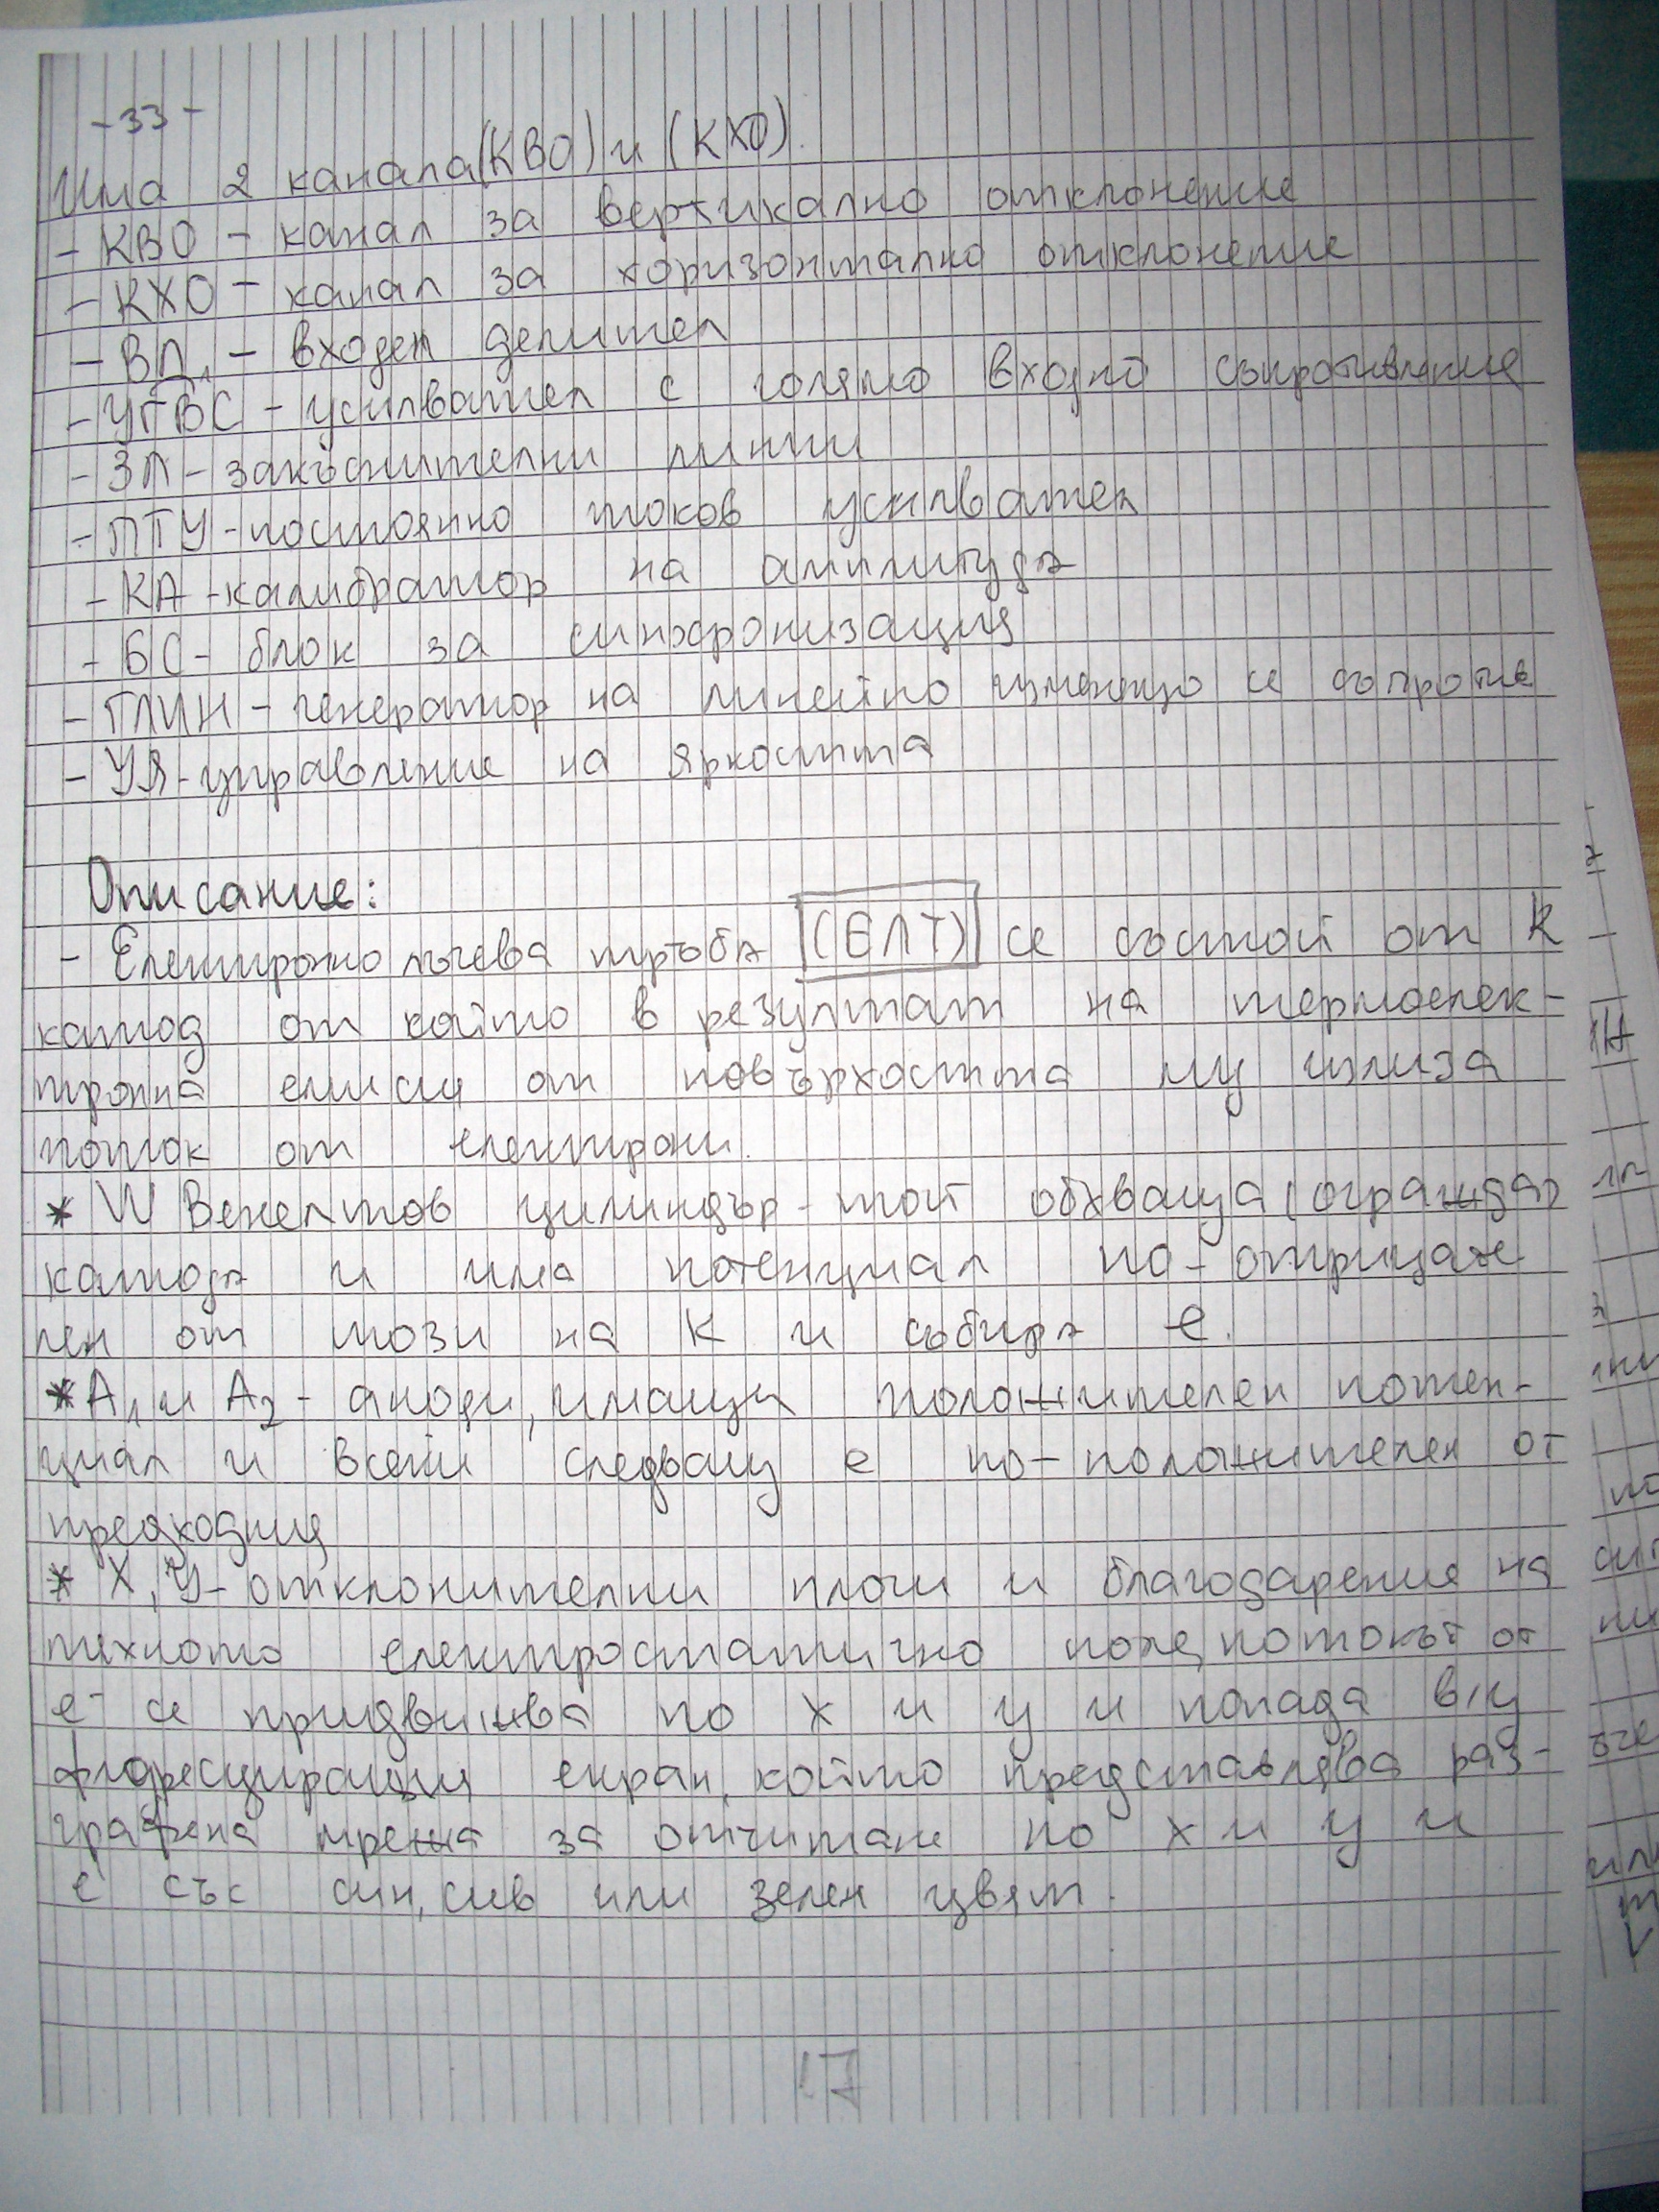 -33-
Има 2 канала (КВО) и (КХО).
- КВО - канал за вертикално отклонение
- КХО - канал за хоризонтално отклонение
- ВД1 - входен делител
- УГВС - усилвател с голямо входно съпротивление
- ЗЛ - закъснителни линии
- ПТУ - постоянно токов усилвател
- КА - калибратор на амплитуда
- БС - блок за синхронизация
- ГЛИН - генератор на линейно изменящо се съпротив
- УЯ - управление на яркостта
Описание:
- Електронно лъчева тръба (ЕЛТ) се състой от К
катод от който в резултат на термоелек-
тронна емисия от повърхостта му излиза
поток от електрони.
* W Венелтов цилиндър - той обхваща (огражда)
катода и има потенциал по-отрицате
лен от този на К и събира е.
* А1 и А2 - аноди, имащи положителен потен-
циал и всеки следващ е по-положителен от
предходния
* X, Y - отклонителни плочи и благодарение на
тяхното електростатично поле, потокът от
е- се придвижва по х и у и попада в/у
флуоресциращия екран, който представлява раз-
графена мрежа за отчитане по х и у и
е със син, сив или зелен цвят.